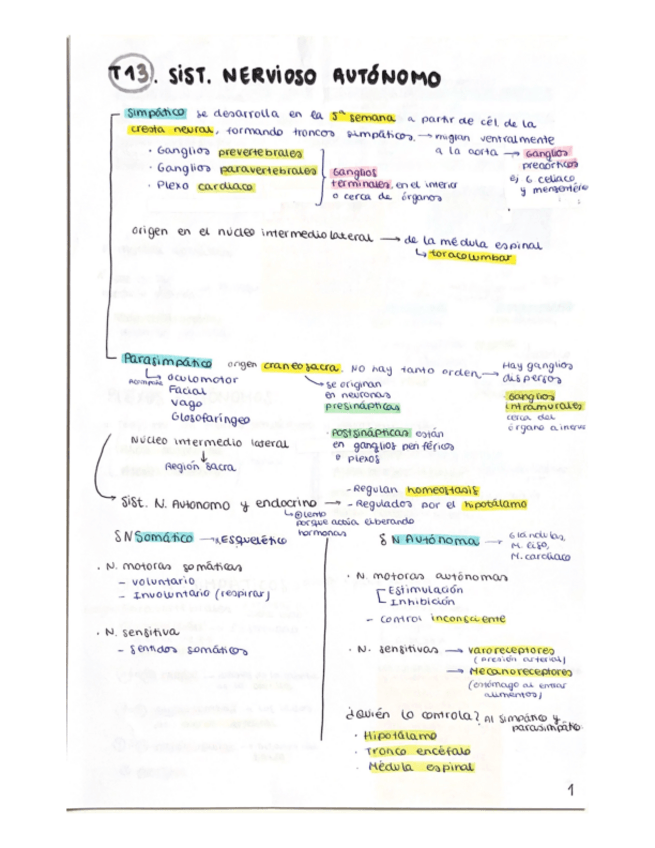 T13. SIST. NERVIOSO AUTÓNOMO
Simpático se desarrolla en la 5ª semana a partir de cél. de la
cresta neural, formando troncos simpáticos. → migran ventralmente
a la aorta → Ganglios
preaórticos
ej G. celiaco
y mensentére
· Ganglios prevertebrales
· Ganglios paravertebrales
· Plexo cardiaco
Ganglios
terminales, en el interior
o cerca de órganos
origen en el núcleo intermediolateral → de la médula espinal
↳ toracolumbar
Parasimpático origen craneosacra. NO hay tanto orden → Hay ganglios
dispersos
↳ oculomotor
Facial
Vago
Glosofaríngeo
se originan
en neuronas
presinápticas
Ganglios
intramurales
cerca del
órgano a inerve
· Postsinápticas están
en ganglios periféricos
o plexos
Núcleo intermedio lateral
↓
Región sacra
Sist. N. Autonomo y endocrino → - Regulan homeostasis
- Regulados por el hipotálamo
↳ ⊕ lento
porque actúa liberando
hormonas
SN Somático → M. Esquelético
· N. motoras somáticas
- voluntario
- Involuntario (respirar)
· N. sensitiva
- Sentidos somáticos
SN Autónoma → Glándulas,
M. liso,
M. cardiaco
· N. motoras autónomas
Estimulación
Inhibición
- control inconsciente
· N. sensitivas → varoreceptores
(presión arterial)
→ Mecanoreceptores
(estómago al entrar
alimentos)
¿Quién lo controla? Al simpático y
parasimpático
· Hipotálamo
· Tronco encéfalo
· Médula espinal
1